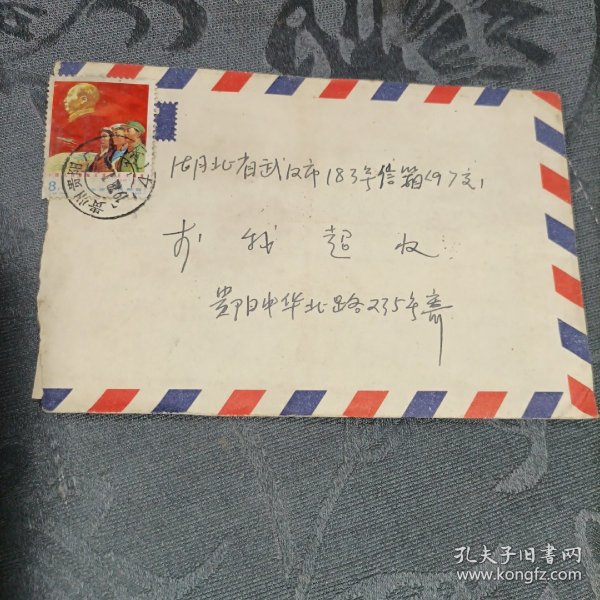 湖北省武汉市183号信箱(97)
超 收
贵阳中华北路235号
8
贵州 贵阳
孔夫子旧书网
www.kongfz.com